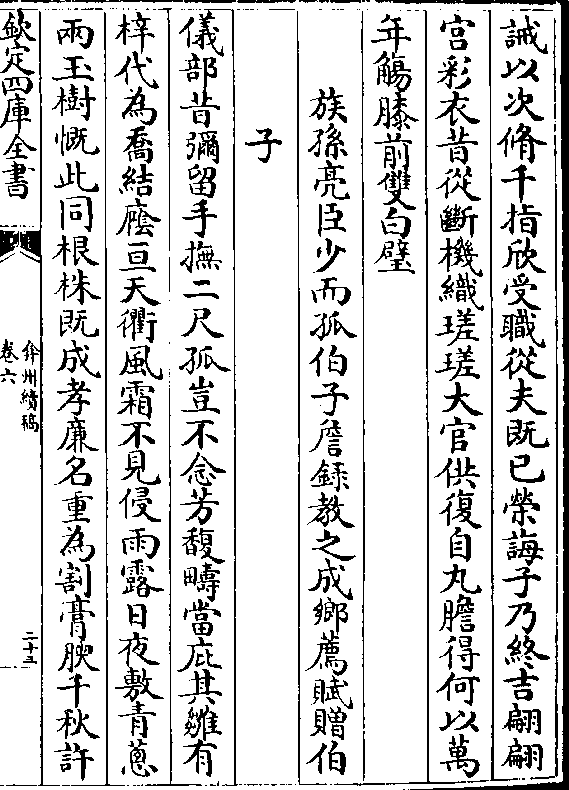 誡以次脩千指欣受職從夫既已榮誨子乃終吉翩翩
宮彩衣昔從斷機織瑳瑳大官供復自丸膽得何以萬
年觴膝前雙白璧
族孫亮臣少而孤伯子詹錄教之成鄉薦賦贈伯
子
儀部昔彌留手撫二尺孤豈不念芳馥疇當庇其雛有
梓代為喬結廕亘天衢風霜不見侵雨露日夜敷青蔥
兩玉樹慨此同根株既成孝廉名重為割膏腴千秋許
欽定四庫全書
弇州續稿
卷六
二十三